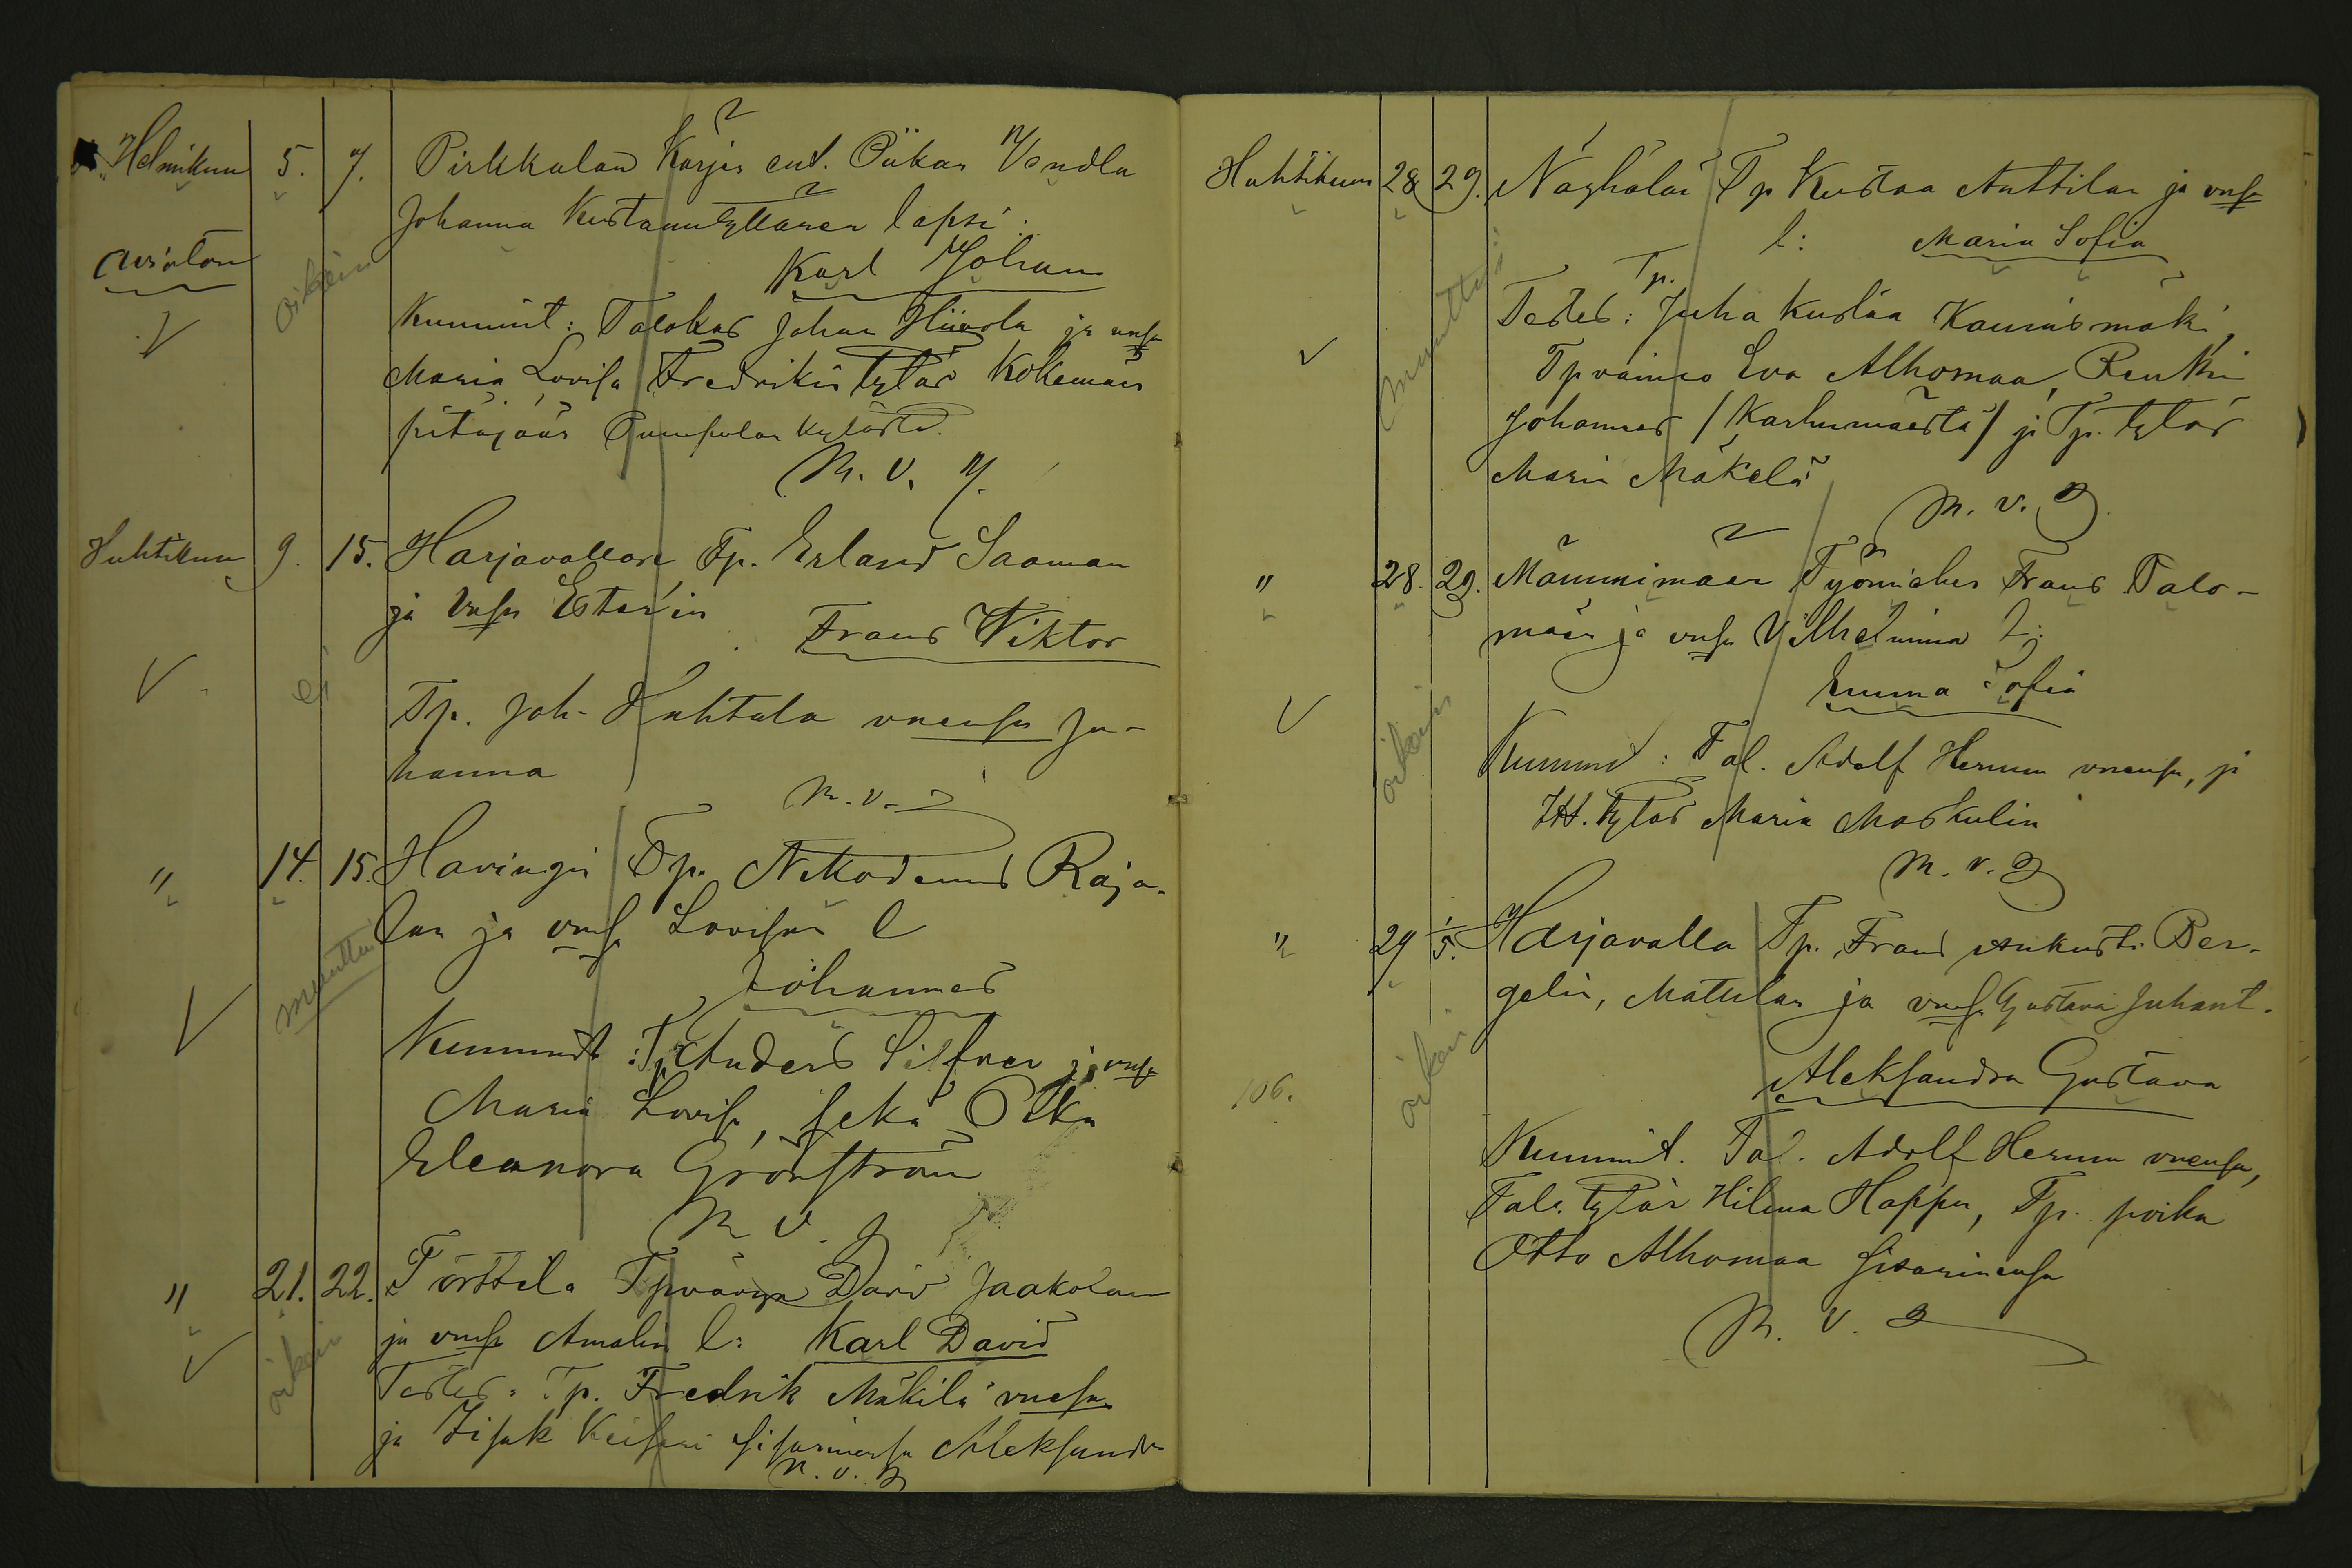 Helmikuu 5. 7. Pirkkalan Karjin ent. Piikan Vendla
Johanna Kustaantyttären lapsi:
Avioton
oikein
Karl Johan
Kummit: Talokas Johan Hiirola ja vmsa
Maria Lovisa Fredrikin tytär Kokemäen
pitäjään kylästä.
M. V.
Huhtikuu 9. 15. Harjavallan Tp. Erland Saaman
ja vmsa Ester'in
Frans Viktor
ei
Tp. Joh. Huhtala vneusa Jo-
hanna
M. V.
" 14. 15. Havingin Tp. Nikodemus Raja-
lan ja vmsa Lovisan l
muuttui
Johannes
Kummit: Tp Anders Silfver ja vmsa
Maria Lovisa, sekä Piika
Eleanora Grönström
M V.
" 21. 22. Torttila Tpvävyn David Jaakolan
ja vmsa Amalia l: Karl David
oikein
Testes: Tp. Fredrik Mäkilä vneusa
ja Iisak Keisari sisarinensa Aleksandra
M. V.
Huhtikuu 28 29. Näyhälän Tp Kustaa Anttilan ja vmsa
l: Maria Sofia
muuttui
Testes: Tp. Juha Kustaa Kaunismäki,
Tpvaimo Eva Alhomaa, Renki
Johannes /Karhumäestä/ ja Tp. tytär
Maria Mäkelä
M. V.
" 28. 29. Mämmimäen Työmiehen Frans Talo-
mäen ja vmsa Vilhelmina l:
Emma Sofia
oikein
Kummit: Tal. Adolf Hernun vneusa, ja
Itt. tytär Maria Maskulin
M. V.
" 29 1/5. Harjavalla Tp. Frans Aukusti Ber-
gelin, Mattilan ja vmsa Gustava Juhant.
Aleksandra Gustava
106.
oikein
Kummit. Tal. Adolf Hernun vneusa,
Tal. tytär Hilma Happu, Tp. poika
Otto Alhomaa sisarineusa
M. V.